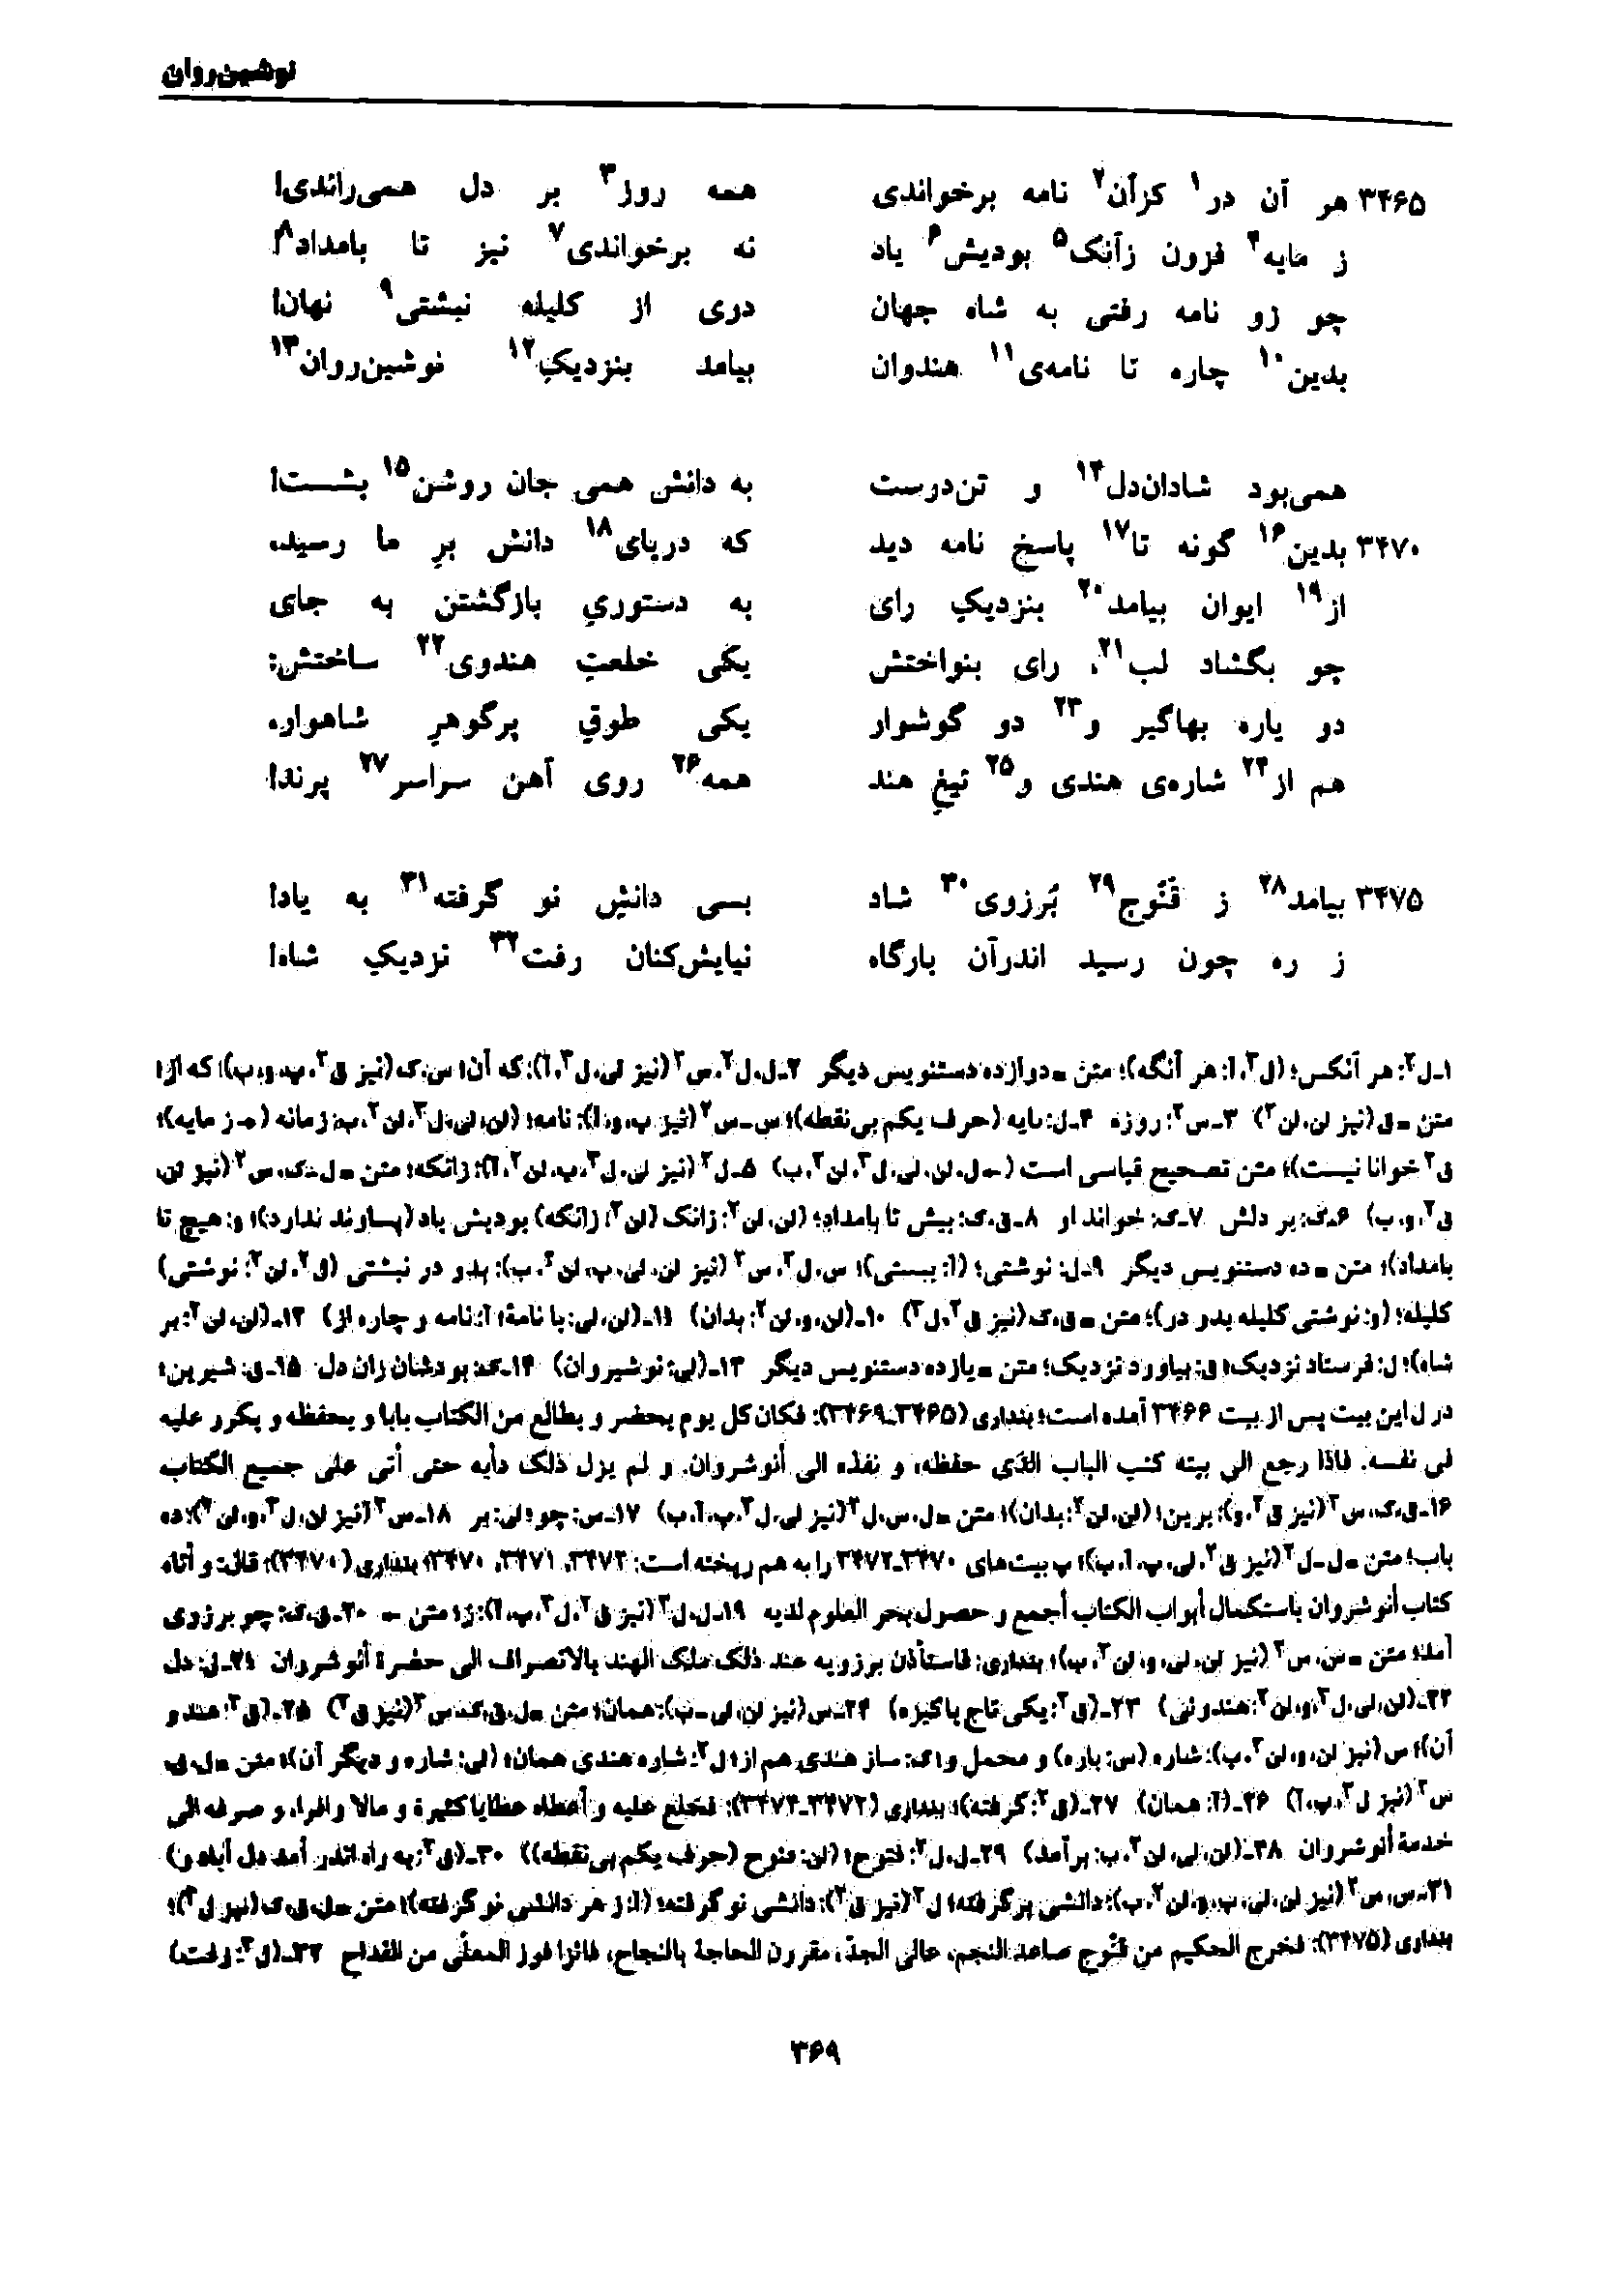 نوشین‌روان
۳۴۶۵ هر آن در۱ کزآن۲ نامه برخواندی همه روز۳ بر دل همی‌راندی!
ز مایه۴ فزون زآنک۵ بودیش۶ یاد نه برخواندی۷ نیز تا بامداد۸!
چو زو نامه رفتی به شاه جهان دری از کلیله نبشتی۹ نهان!
بدین۱۰ چاره تا نامه‌ی۱۱ هندوان بیامد بنزدیکِ۱۲ نوشین‌روان۱۳
همی‌بود شادان‌دل۱۴ و تن‌درست به دانش همی جان روشن۱۵ بشست!
۳۴۷۰ بدین۱۶ گونه تا۱۷ پاسخ نامه دید که دریای۱۸ دانش برِ ما رسید،
از۱۹ ایوان بیامد۲۰ بنزدیکِ رای به دستوریِ بازگشتن به جای
چو بگشاد لب۲۱، رای بنواختش یکی خلعتِ هندوی۲۲ ساختش:
دو یاره بهاگیر و۲۳ دو گوشوار یکی طوقِ پرگوهرِ شاهوار،
هم از۲۴ شاره‌ی هندی و۲۵ تیغِ هند همه۲۶ روی آهن سراسر۲۷ پرند!
۳۴۷۵ بیامد۲۸ ز قَنّوج۲۹ بُرزوی۳۰ شاد بسی دانشِ نو گرفته۳۱ به یاد!
ز ره چون رسید اندرآن بارگاه نیایش‌کنان رفت۳۲ نزدیکِ شاه!
۱ـ ل۲: هر آنکس؛ (ل۳، آ: هر آنگه)؛ متن = دوازده دستنویس دیگر ۲ـ ل، ل۲، س۲ (نیز لی، ل۳، آ): که آن؛ س، ک (نیز ق۲، پ، و، ب): که از؛
متن = ق (نیز لن، لن۲) ۳ـ س۲: روزه ۴ـ ل: مایه (حرف یکم بی‌نقطه)؛ س ـ س۲ (نیز پ، و، آ): نامه؛ (لن، لی، ل۳، لن۲، ب: زمانه (← ز مایه)؛
ق۲ خوانا نیست)؛ متن تصحیح قیاسی است (← ل، لن، لی، ل۳، لن۲، ب) ۵ـ ل۲ (نیز لی، ل۳، پ، لن۲، آ): زانکه؛ متن = ل ـ ک، س۲ (نیز لن،
ق۲، و، ب) ۶ـ ک: بر دلش ۷ـ ک: خواند او ۸ـ ق، ک: بیش تا بامداد؛ (لن، لن۲: زانک (لن۲: زانکه) بودیش یاد (پساوند ندارد)؛ و: هیچ تا
بامداد)؛ متن = ده دستنویس دیگر ۹ـ ل: نوشتی؛ (آ: ببستی)؛ س، ل۲، س۲ (نیز لن، لی، پ، لن۲، ب): بدو در نبشتی (ل۲، لن۲: نوشتی)
کلیله؛ (و: نوشتی کلیله بدو در)؛ متن = ق، ک (نیز ق۲، ل۳) ۱۰ـ (لن، و، لن۲: بدان) ۱۱ـ (لن، لی: با نامهٔ؛ آ: نامه و چاره از) ۱۲ـ (لن، لن۲: بر
شاه)؛ ل: فرستاد نزدیک؛ ق: بیاورد نزدیک؛ متن = یازده دستنویس دیگر ۱۳ـ (لی: نوشیروان) ۱۴ـ ک: بودشان زان دل ۱۵ـ ق: شیرین؛
در ل این بیت پس از بیت ۳۴۶۶ آمده است؛ بنداری (۳۴۶۵ـ۳۴۶۹): فکان کل یوم یحضر و یطالع من الکتاب بابا و یحفظه و یکرر علیه
فی نفسه. فاذا رجع الی بیته کتب الباب الذی حفظه، و نفذه الی أنوشروان. و لم یزل ذلک دأبه حتی أتی علی جمیع الکتاب
۱۶ـ ق، ک، س۲ (نیز ق۲، و): برین؛ (لن، لن۲: بدان)؛ متن = ل، س، ل۲ (نیز لی، ل۳، پ، آ، ب) ۱۷ـ س: چو؛ لی: بر ۱۸ـ س۲ (نیز لن، ل۳، و، لن۲): ده
باب؛ متن = ل ـ ل۲ (نیز ق۲، لی، پ، آ، ب)؛ پ بیت‌های ۳۴۷۰ـ۳۴۷۲ را به هم ریخته است: ۳۴۷۲، ۳۴۷۱، ۳۴۷۰؛ بنداری (۳۴۷۰): قال: و أتاه
کتاب أنوشروان باستکمال أبواب الکتاب أجمع و حصول بحر العلوم لدیه ۱۹ـ ل، ل۲ (نیز ق۲، ل۳، پ، آ): ز؛ متن = ۲۰ـ ق، ک: چو برزوی
آمد؛ متن = س، س۲ (نیز لن، لی، و، لن۲، ب)؛ بنداری: فاستأذن برزویه عند ذلک ملک الهند بالانصراف الی حضرة أنوشروان ۲۱ـ ل: دل
۲۲ـ (لن، لی، ل۳، و، لن۲: هندوئی) ۲۳ـ (ق۲: یکی تاج پاکیزه) ۲۴ـ س (نیز لن، لی ـ ب): همان؛ متن = ل، ق، ک، س۲ (نیز ق۲) ۲۵ـ (ق۲: هند و
آن)؛ س (نیز لن، و، لن۲، ب): شاره (س: باره) و مخمل و؛ ک: ساز هندی هم از؛ ل۲: شاره هندی همان؛ (لی: شاره و دیگر آن)؛ متن = ل، ق،
س۲ (نیز ل۳، پ، آ) ۲۶ـ (آ: همان) ۲۷ـ (ق۲: گرفته)؛ بنداری (۳۴۷۲ـ۳۴۷۴): فخلع علیه و أعطاه عطایا کثیرة و مالا وافرا، و صرفه الی
خدمة أنوشروان ۲۸ـ (لن، لی، لن۲، ب: برآمد) ۲۹ـ ل، ل۲: فتوح؛ (لن: منوح (حرف یکم بی‌نقطه)) ۳۰ـ (ق۲: به راه اندر آمد دل آباد و)
۳۱ـ س، س۲ (نیز لن، لی، پ، و، لن۲، ب): دانشی برگرفته؛ ل۲ (نیز ق۲): دانشی نو گرفته؛ (آ: ز هر دانشی نو گرفته)؛ متن = ل، ق، ک (نیز ل۳)؛
بنداری (۳۴۷۵): فخرج الحکیم من قنّوج صاعد النجم، عالی الجدّ، مقرون الحاجة بالنجاح، فائزا فوز المعلّی من القداح ۳۲ـ (ل۳: رفت)
۳۶۹